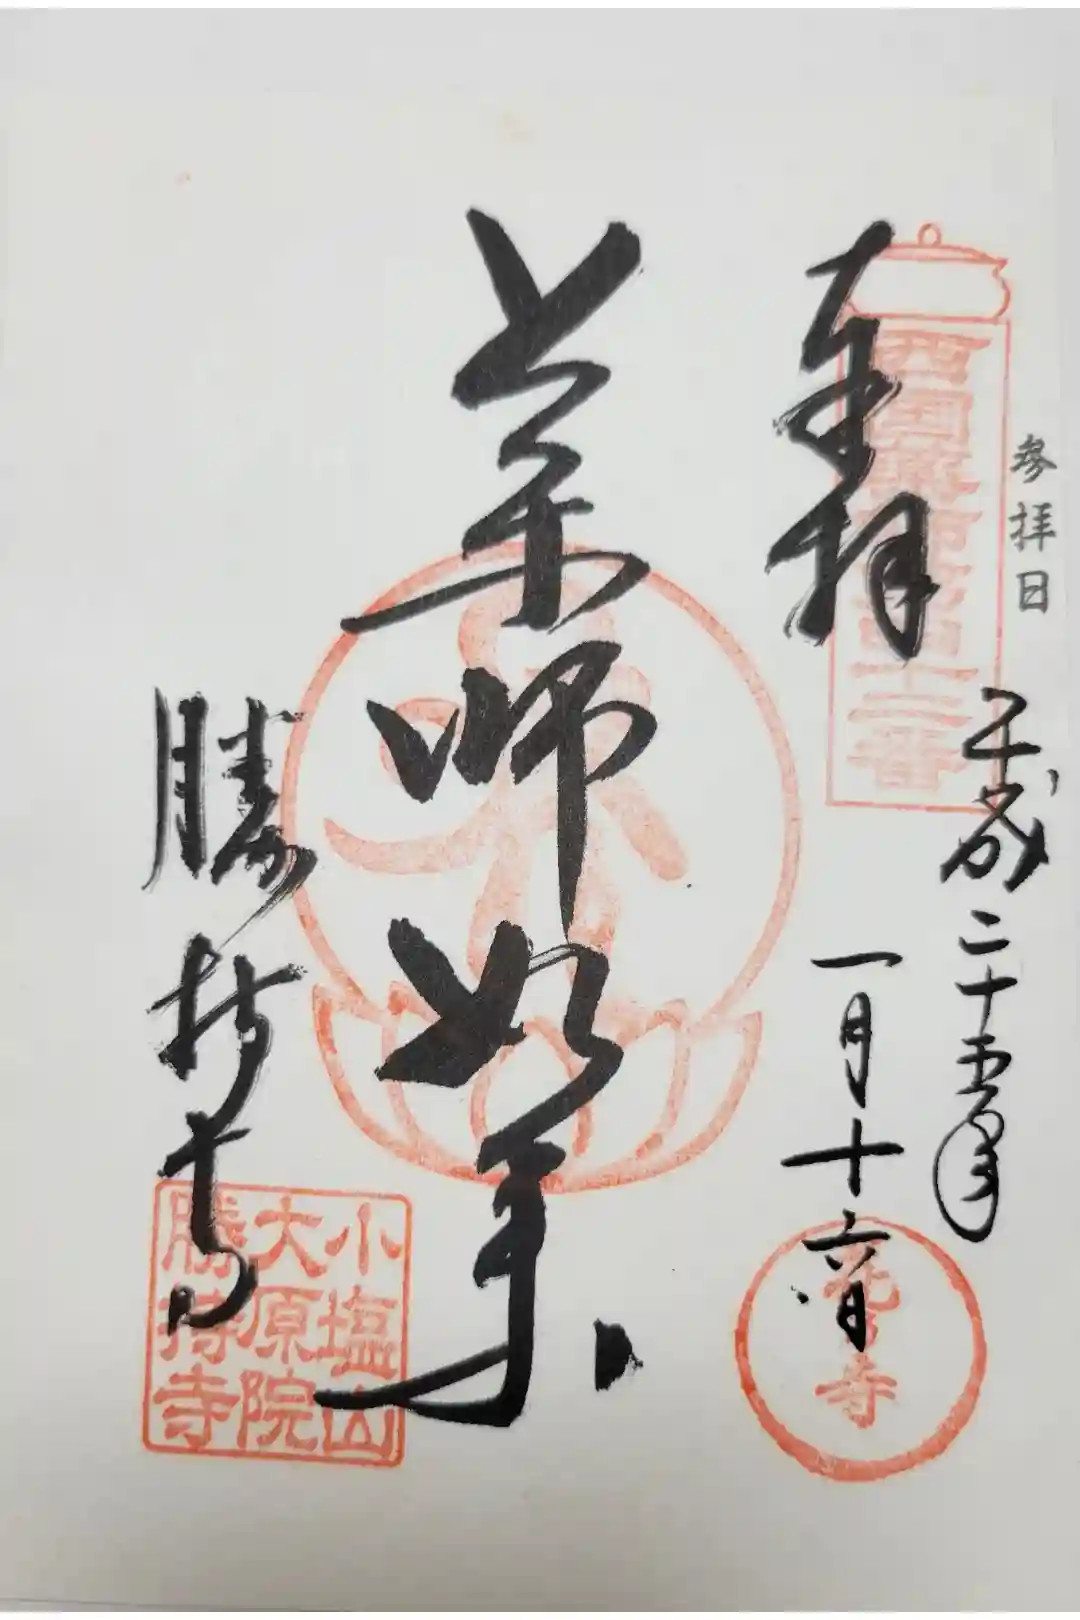 参拝日
平成二十五年
一月十六日
奉拝
西国薬師第四十二番
花の寺
薬師如来
勝持寺
小塩山
大原院
勝持寺